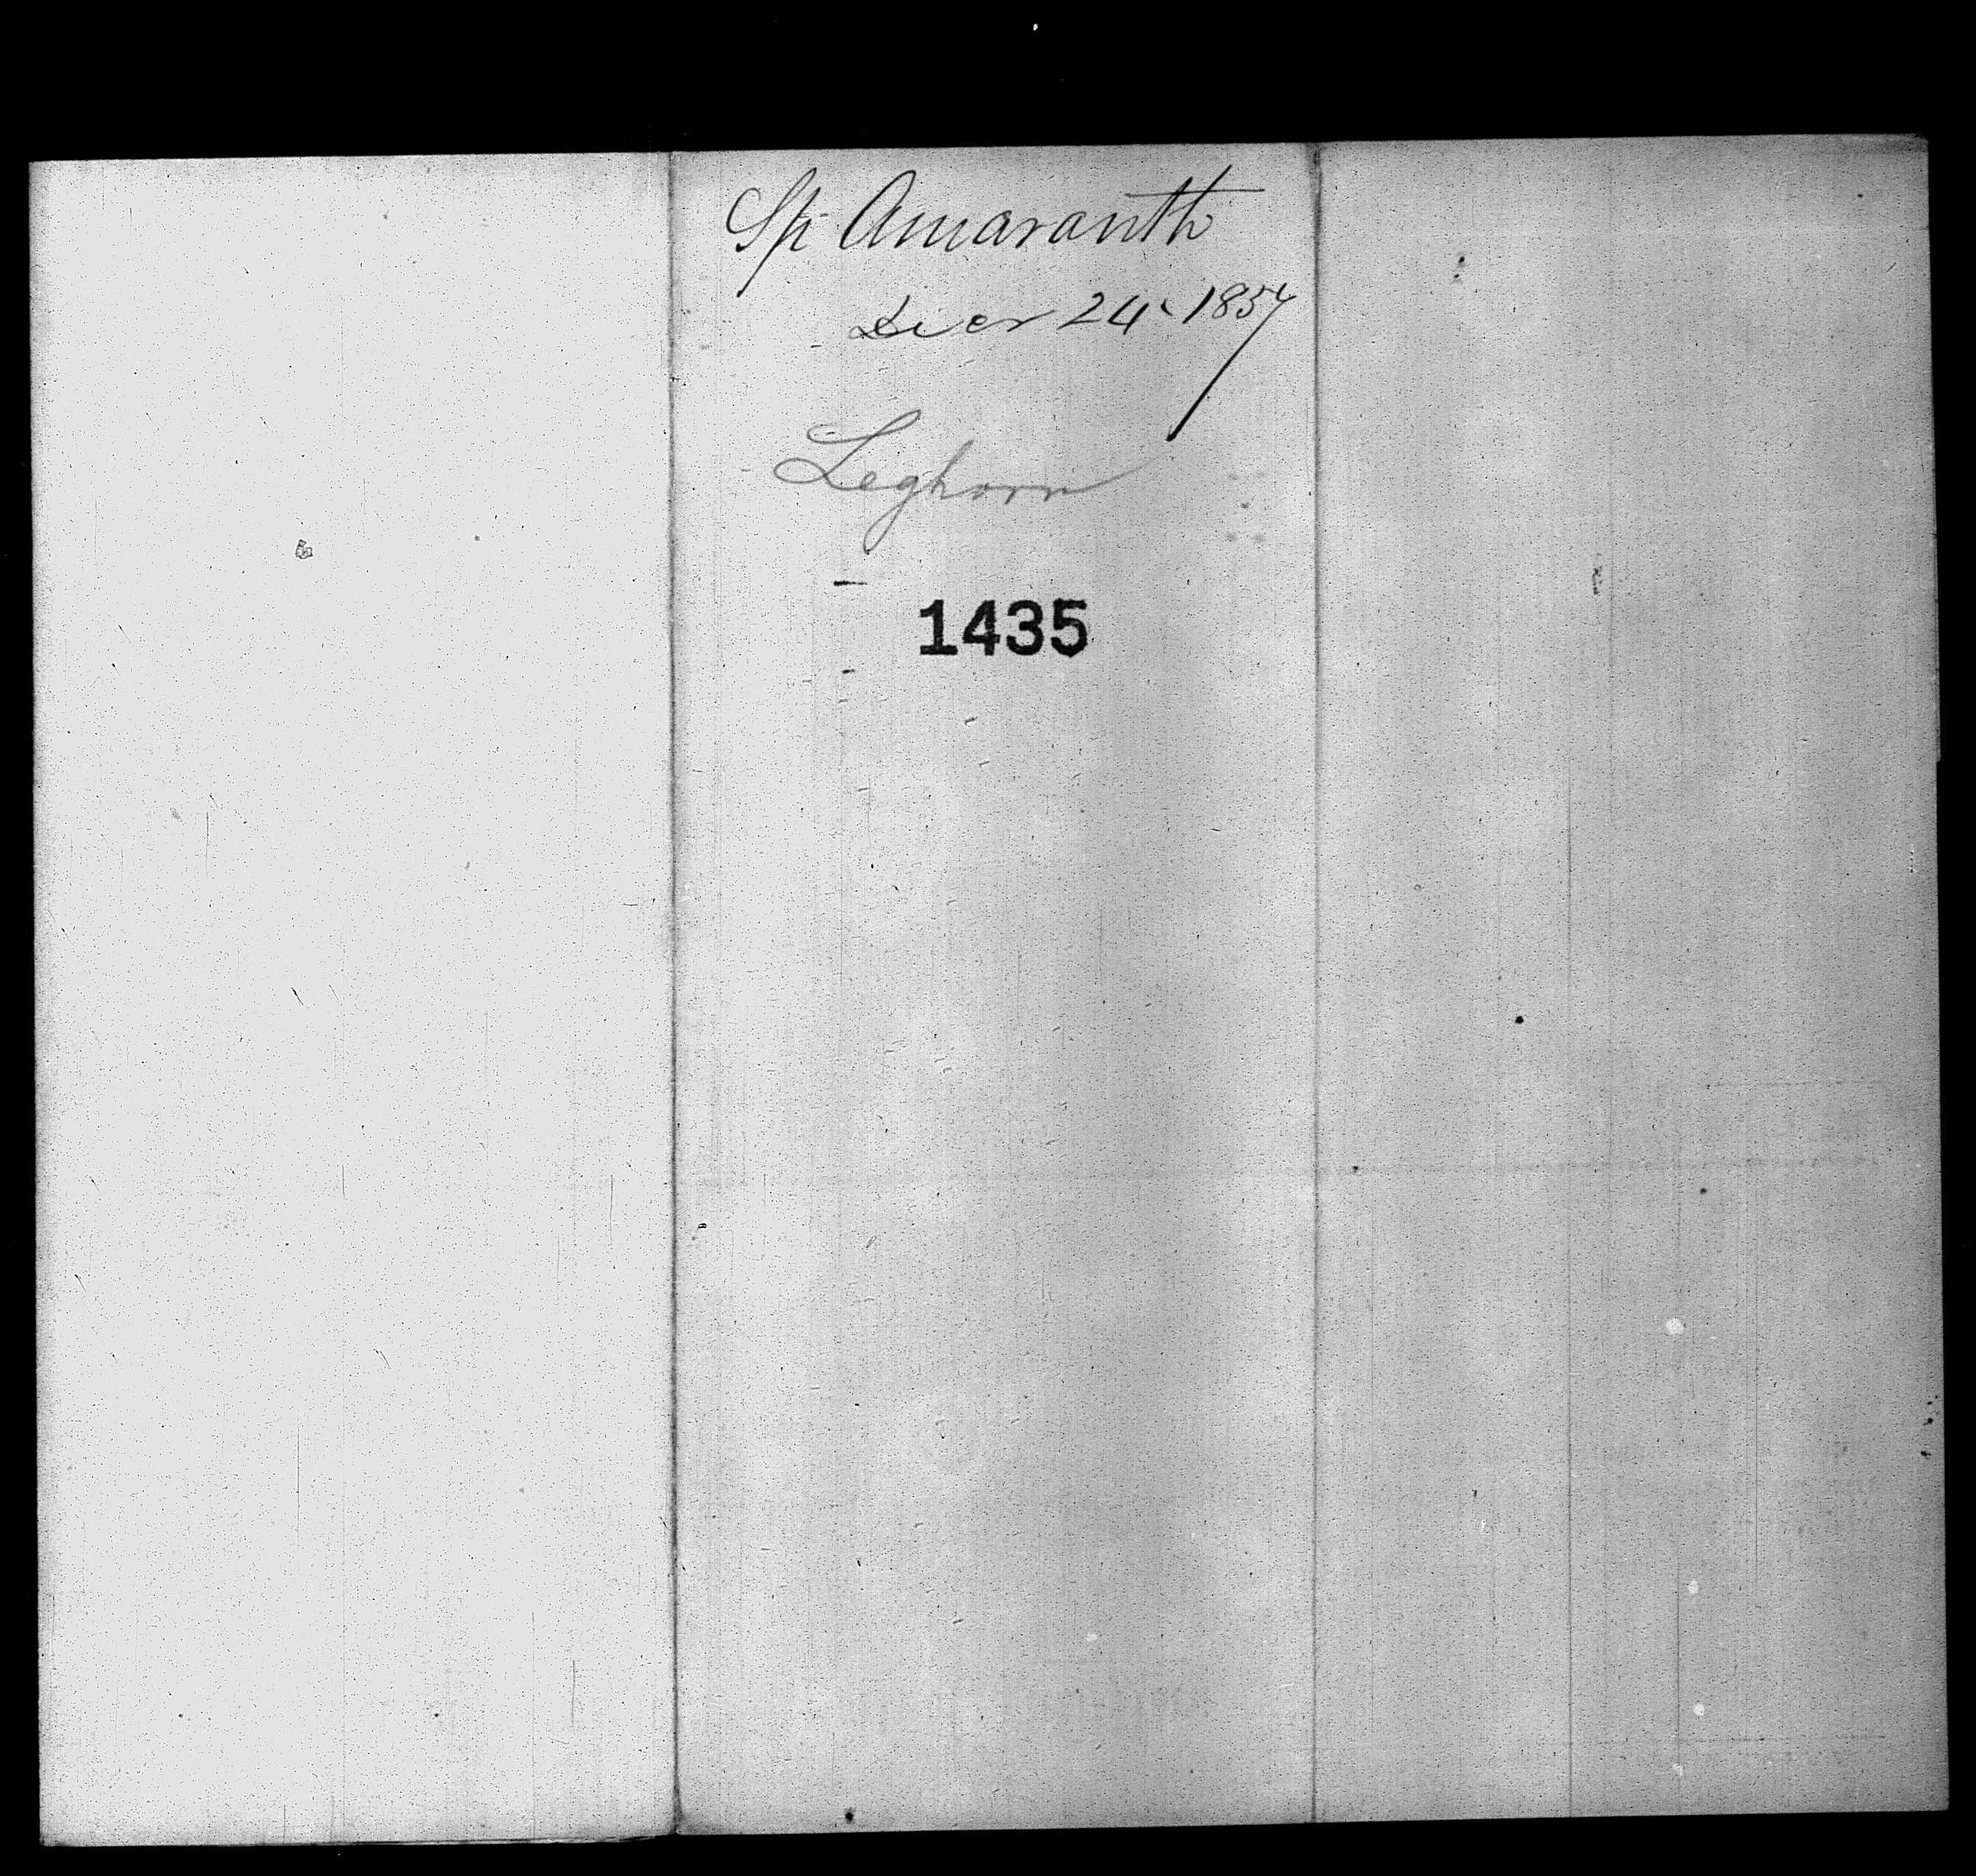 Sp Amaranth
Decr 24 1857
Leghorn
1435